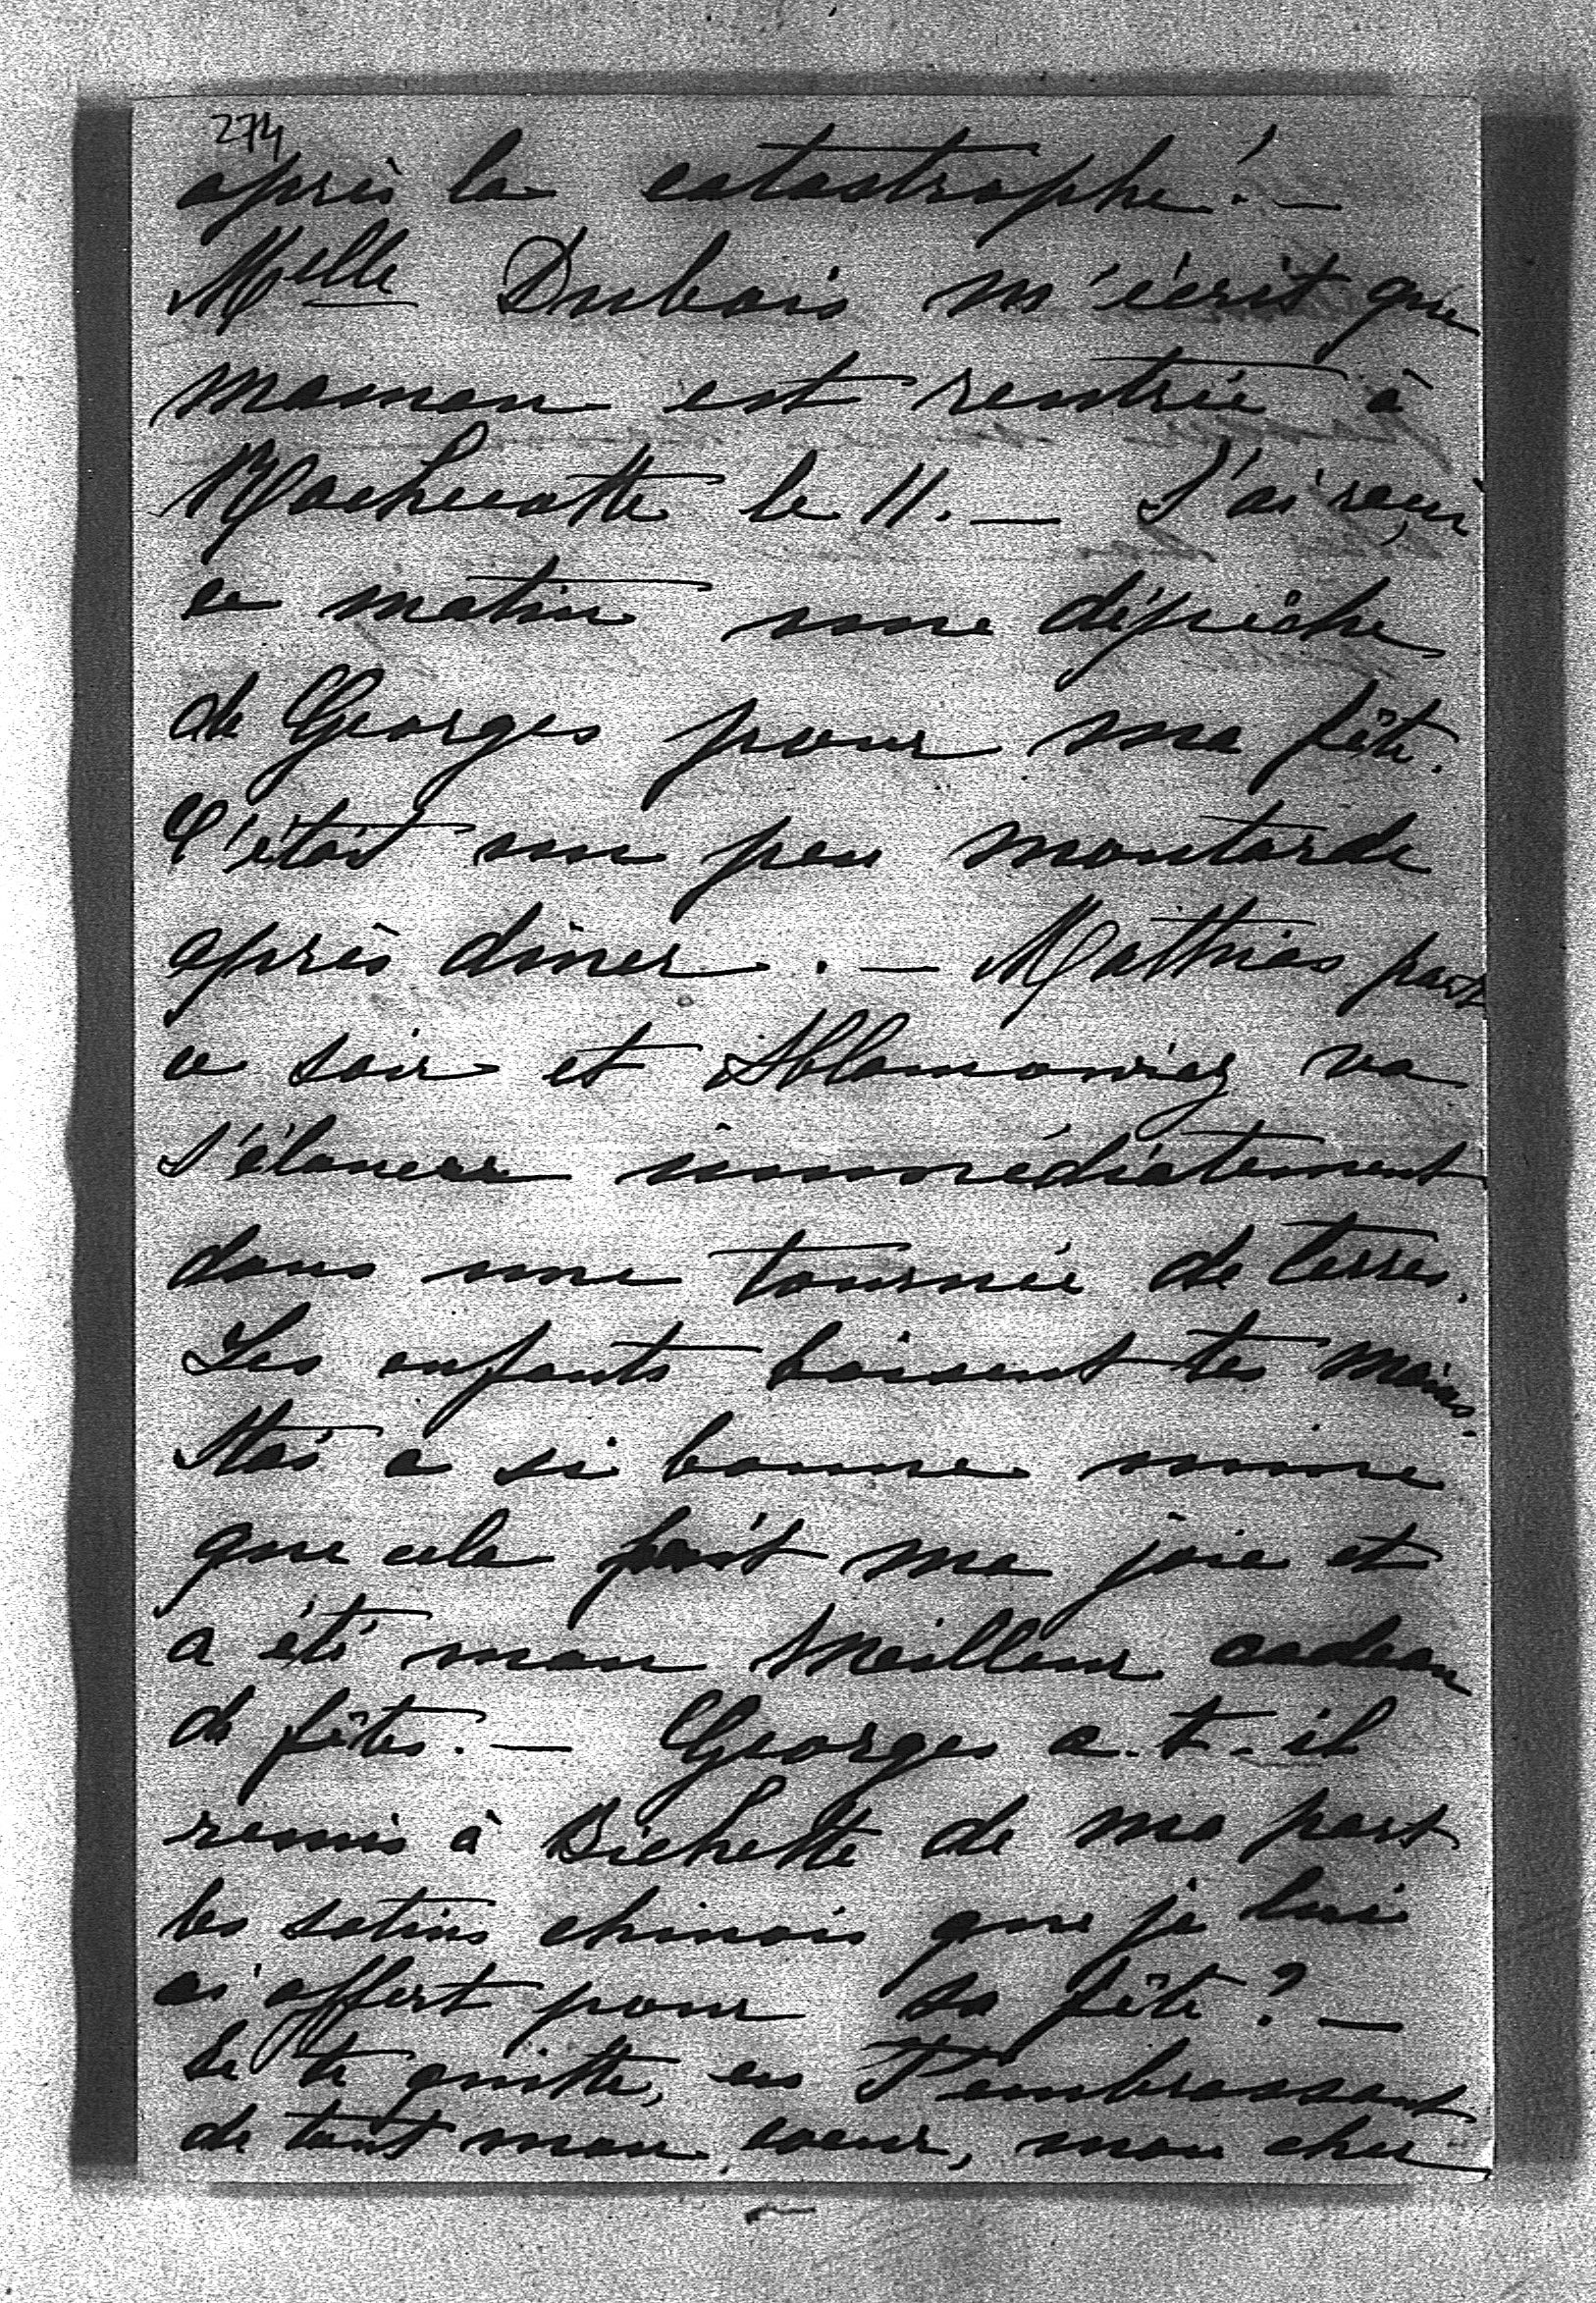 274
après la catastrophe! —
Melle Dubois m'écrit que
maman est rentrée à
Rochecotte le 11. — J'ai reçu
ce matin une dépêche
de Georges pour ma fête.
C'était un peu moutarde
après dîner. — Mathias part
ce soir et Ablamowicz va
s'élancer immédiatement
dans une tournée de terres.
Les enfants baisent tes mains.
Stas a si bonne mine
que cela fait ma joie et
a été mon meilleur cadeau
de fêtes. — Georges a-t-il
remis à Bichette de ma part
les satins chinois que je lui
ai offert pour sa fête? —
Je te quitte, en t'embrassant
de tout mon coeur, mon cher